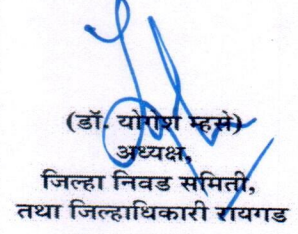 (डॉ. योगेश म्हसे)
अध्यक्ष,
जिल्हा निवड समिती,
तथा जिल्हाधिकारी रायगड